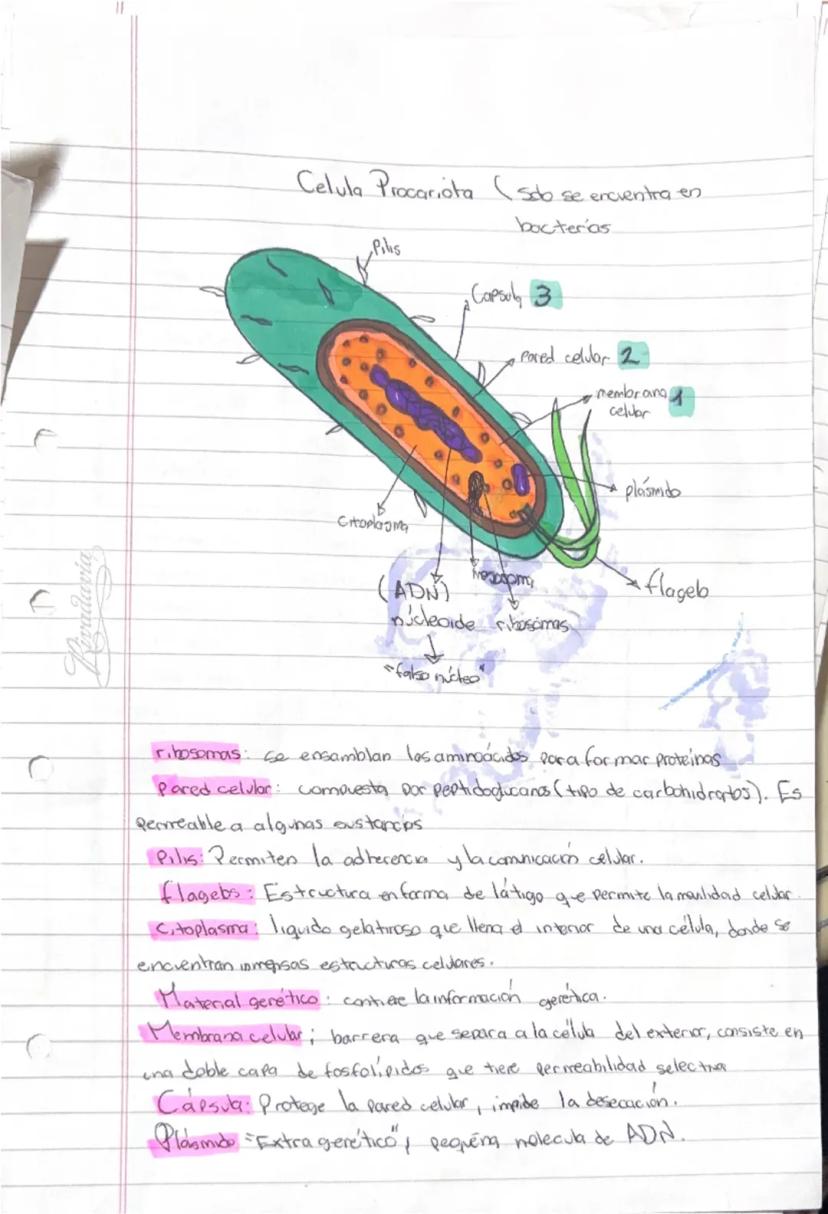 Celula Procariota (solo se encuentra en
bacterias
Pilis
Capsula 3
Pared celular 2
membrana 1
celular
plásmido
citoplasma
mesosoma
flagelo
(ADN)
núcleoide
ribosomas
"falso núcleo"
Rivadavia
ribosomas: se ensamblan los aminoácidos para formar proteínas
Pared celular: compuesta por peptidoglucanos (tipo de carbohidratos). Es
permeable a algunas sustancias
Pilis: Permiten la adherencia y la comunicación celular.
flagelos: Estructura en forma de látigo que permite la movilidad celular.
Citoplasma: líquido gelatinoso que llena el interior de una célula, donde se
encuentran inmensas estructuras celulares.
Material genético: contiene la información genética.
Membrana celular; barrera que separa a la célula del exterior, consiste en
una doble capa de fosfolípidos que tiene permeabilidad selectiva
Cápsula: Protege la pared celular, impide la desecación.
Plásmido "Extra genético", pequeña molecula de ADN.